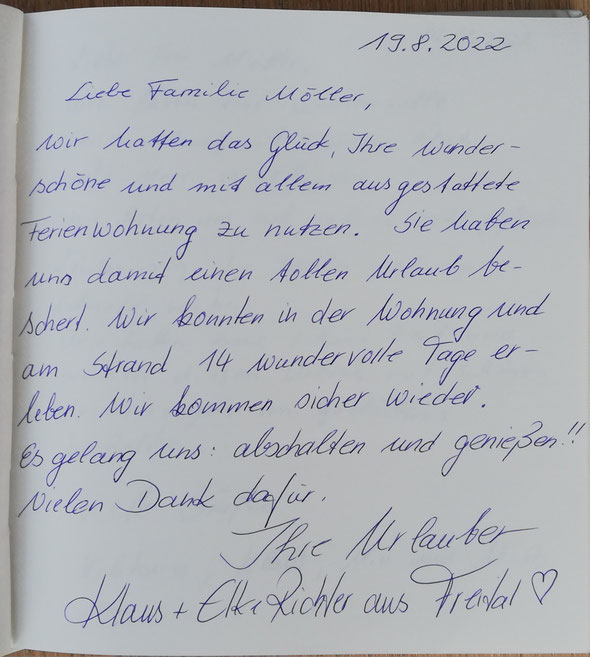 19.8.2022
Liebe Familie Möller,
wir hatten das Glück, Ihre wunder-
schöne und mit allem ausgestattete
Ferienwohnung zu nutzen. Sie haben
uns damit einen tollen Urlaub be-
schert. Wir konnten in der Wohnung und
am Strand 14 wundervolle Tage er-
leben. Wir kommen sicher wieder.
Es gelang uns: abschalten und genießen!!
Vielen Dank dafür.
Ihre Urlauber
Klaus + Elke Richter aus Freital ♡